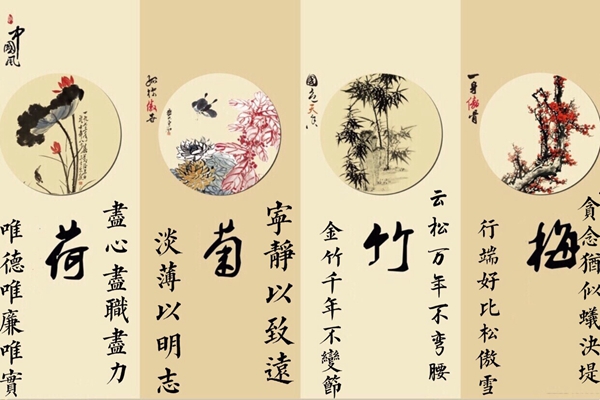 中國風
荷
盡心盡職盡力
唯德唯廉唯實
菊
寧靜以致遠
淡薄以明志
竹
云松万年不弯腰
金竹千年不變節
一身傲骨
梅
貪念猶似蟻決堤
行端好比松傲雪